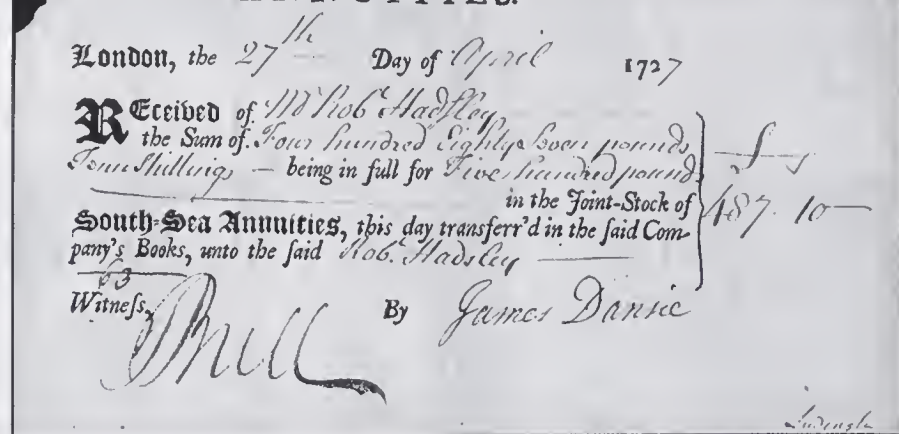 London, the 27th Day of April 1727
REceived of Mr Robt Hadsley
the Sum of Four hundred Eighty Seven pounds
Tenn Shillings — being in full for Five hundred pound
in the Joint-Stock of
South-Sea Annuities, this day tranſferr'd in the ſaid Com-
pany's Books, unto the ſaid Robt. Hadsley
£ s
487. 10 —
63
Witneſs, By James Dansie